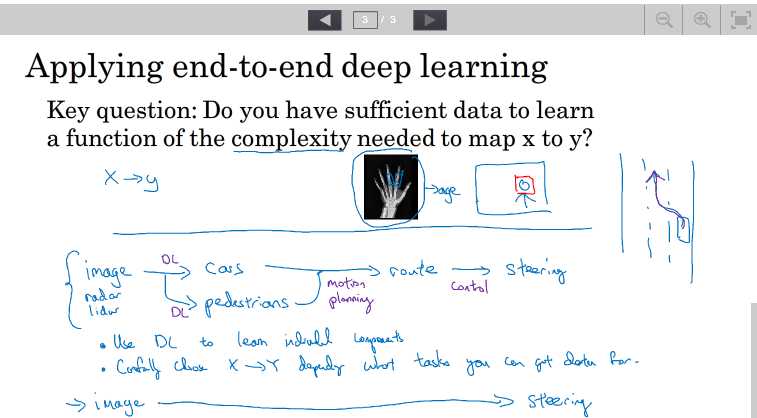 3 / 3
Applying end-to-end deep learning
Key question: Do you have sufficient data to learn
a function of the complexity needed to map x to y?
X → y
→ age
image DL → cars → route → steering
radar
lidar
DL → pedestrians
motion
planning
control
• Use DL to learn individual components
• Carefully choose X → Y depending what tasks you can get data for.
→ image → steering